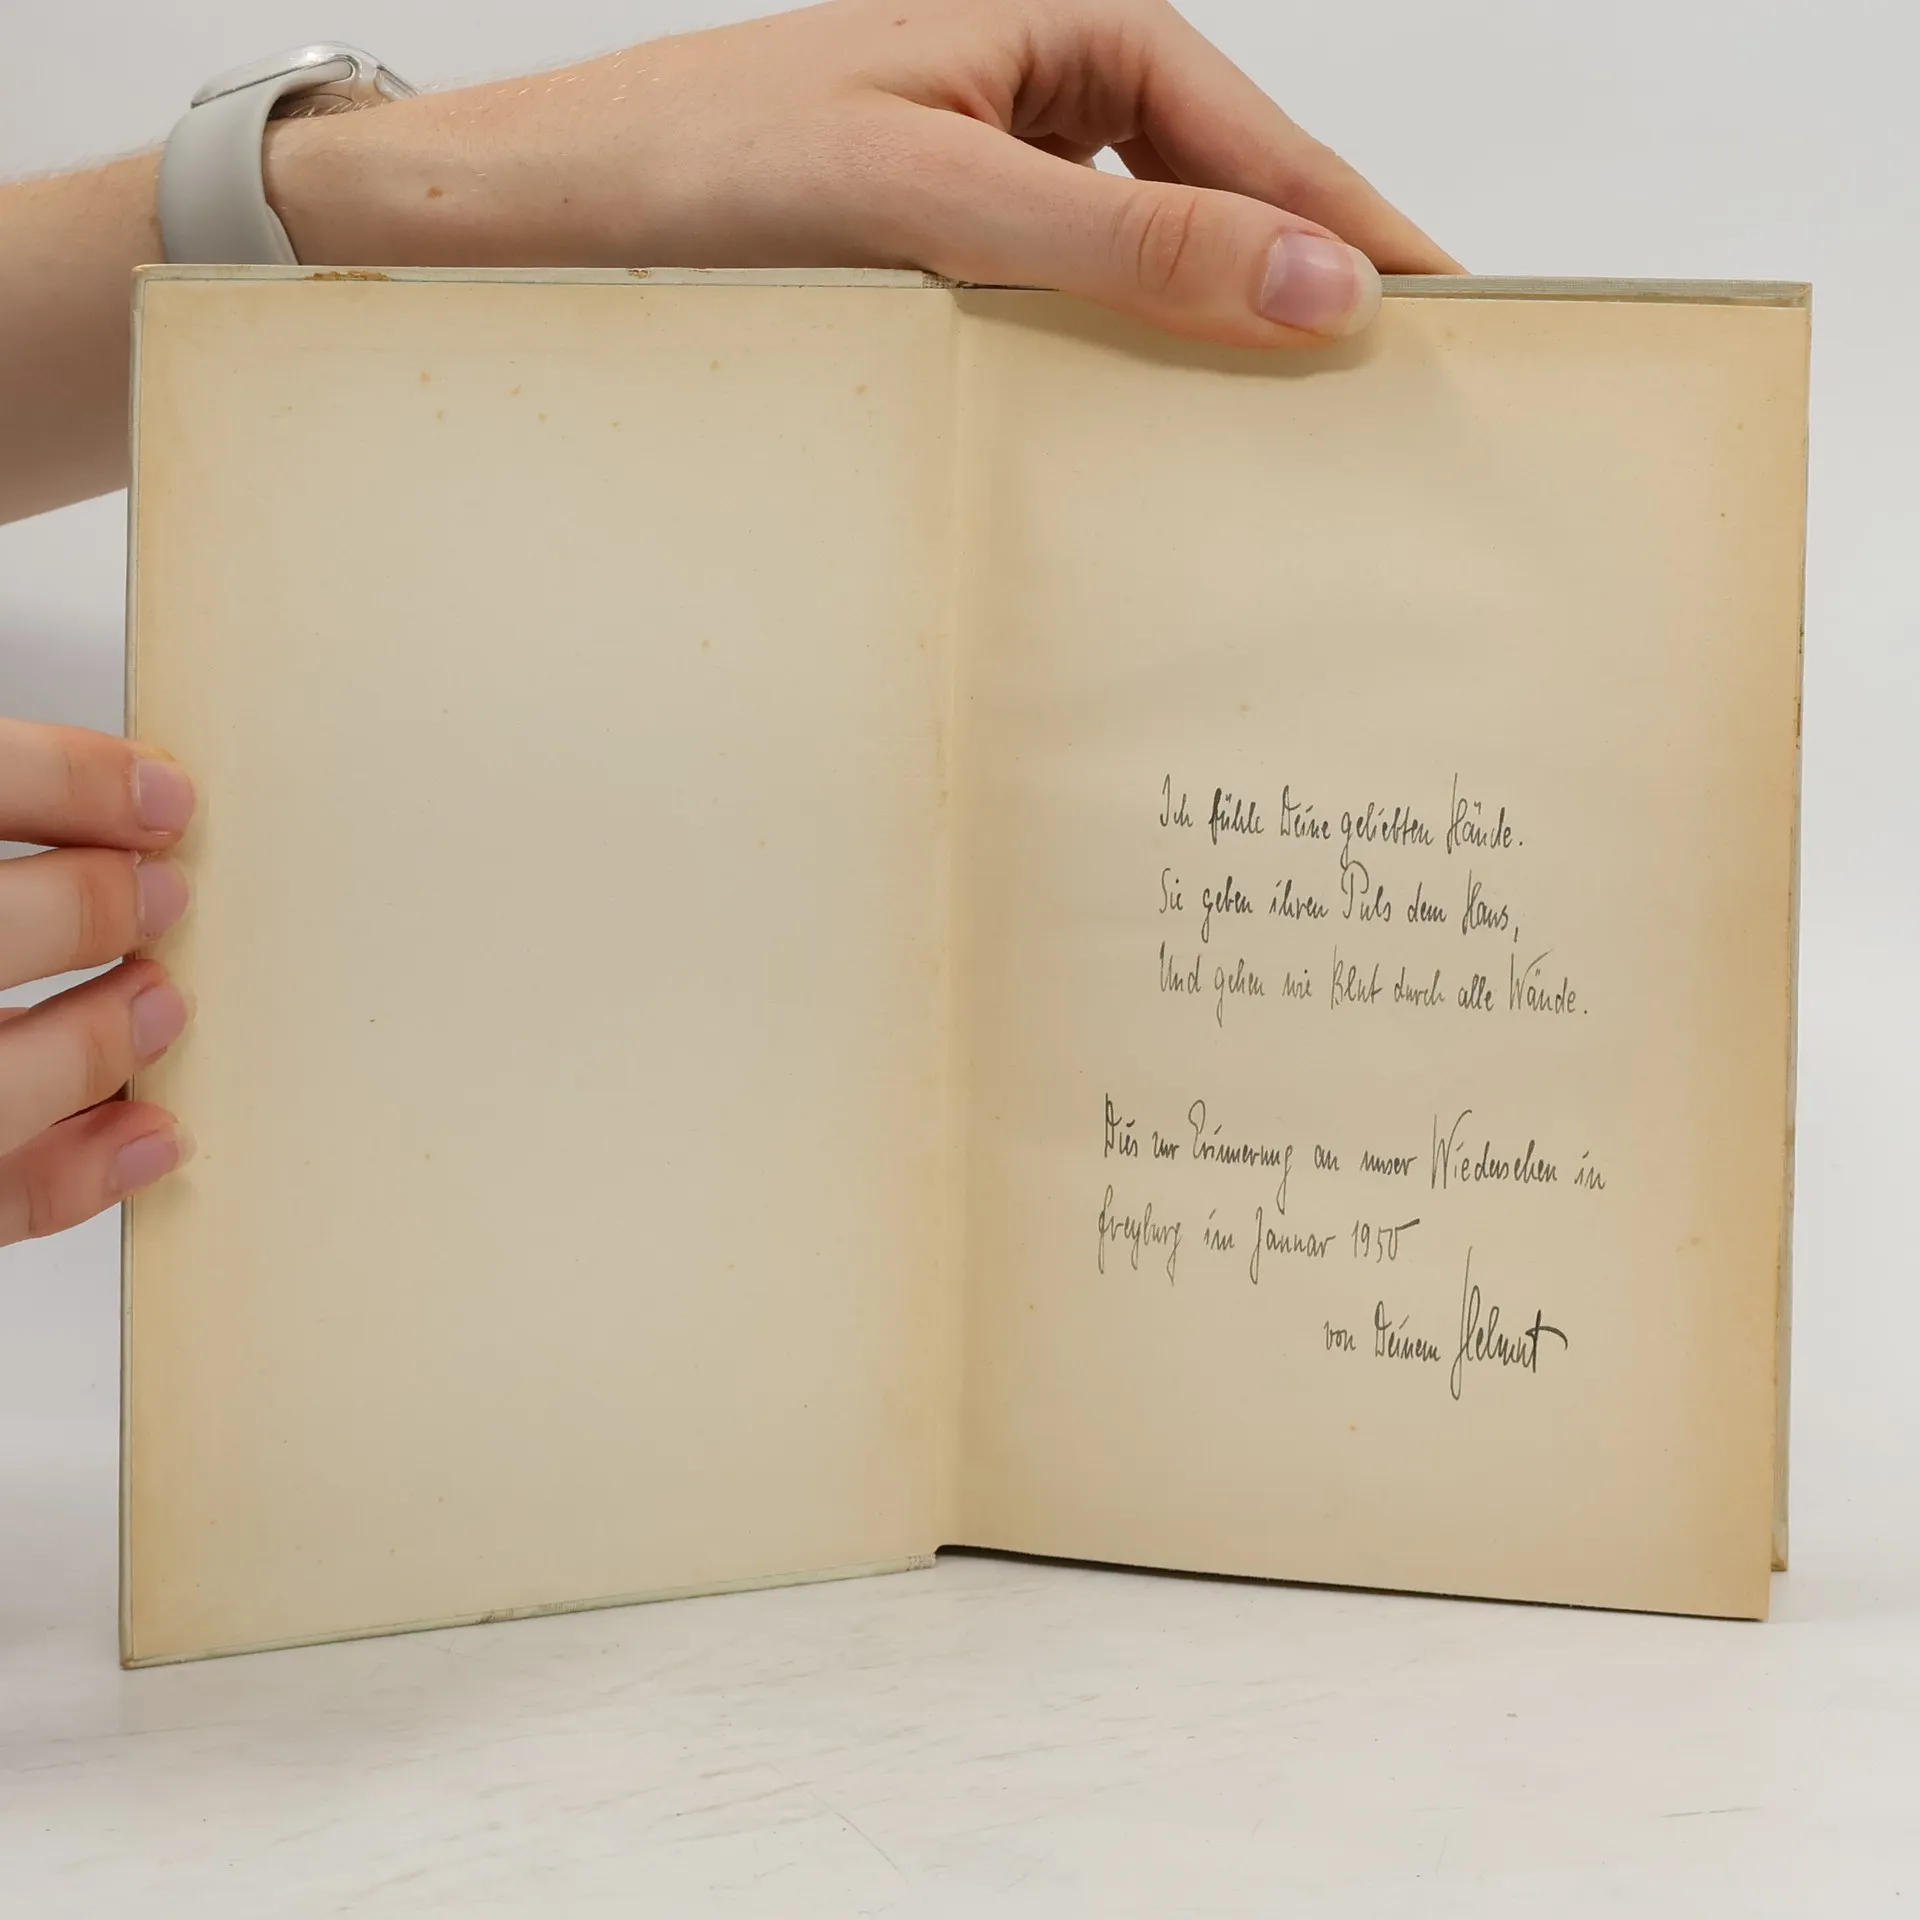 Ich fühle Deine geliebten Hände.
Sie geben ihren Puls dem Haus,
Und gehen wie Blut durch alle Wände.
Dies zur Erinnerung an unser Wiedersehen in
Freyburg im Januar 1950
von Deinem Helmut